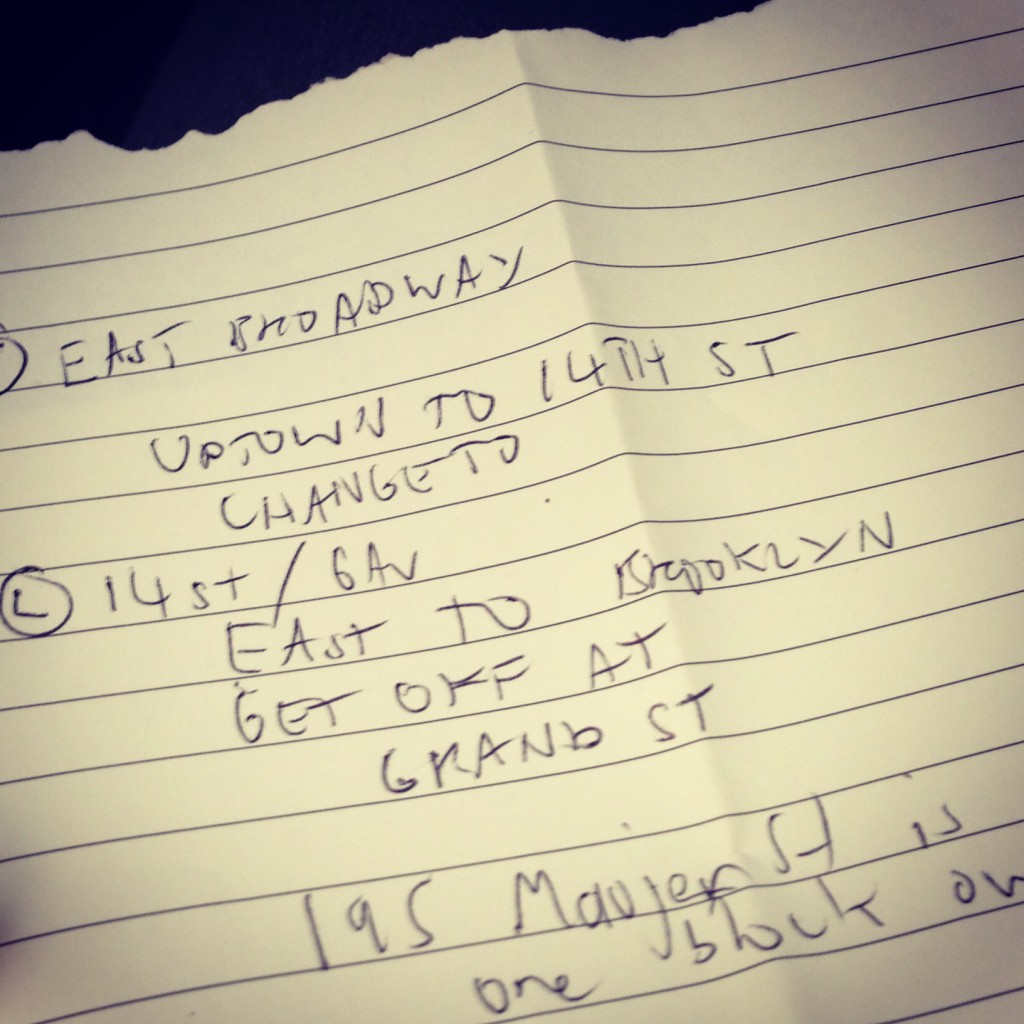 EAST BROADWAY
UPTOWN TO 14TH ST
CHANGE TO
L 14 St / 6 Av
EAST TO BROOKLYN
GET OFF AT
GRAND ST
195 Maujer St is
one block